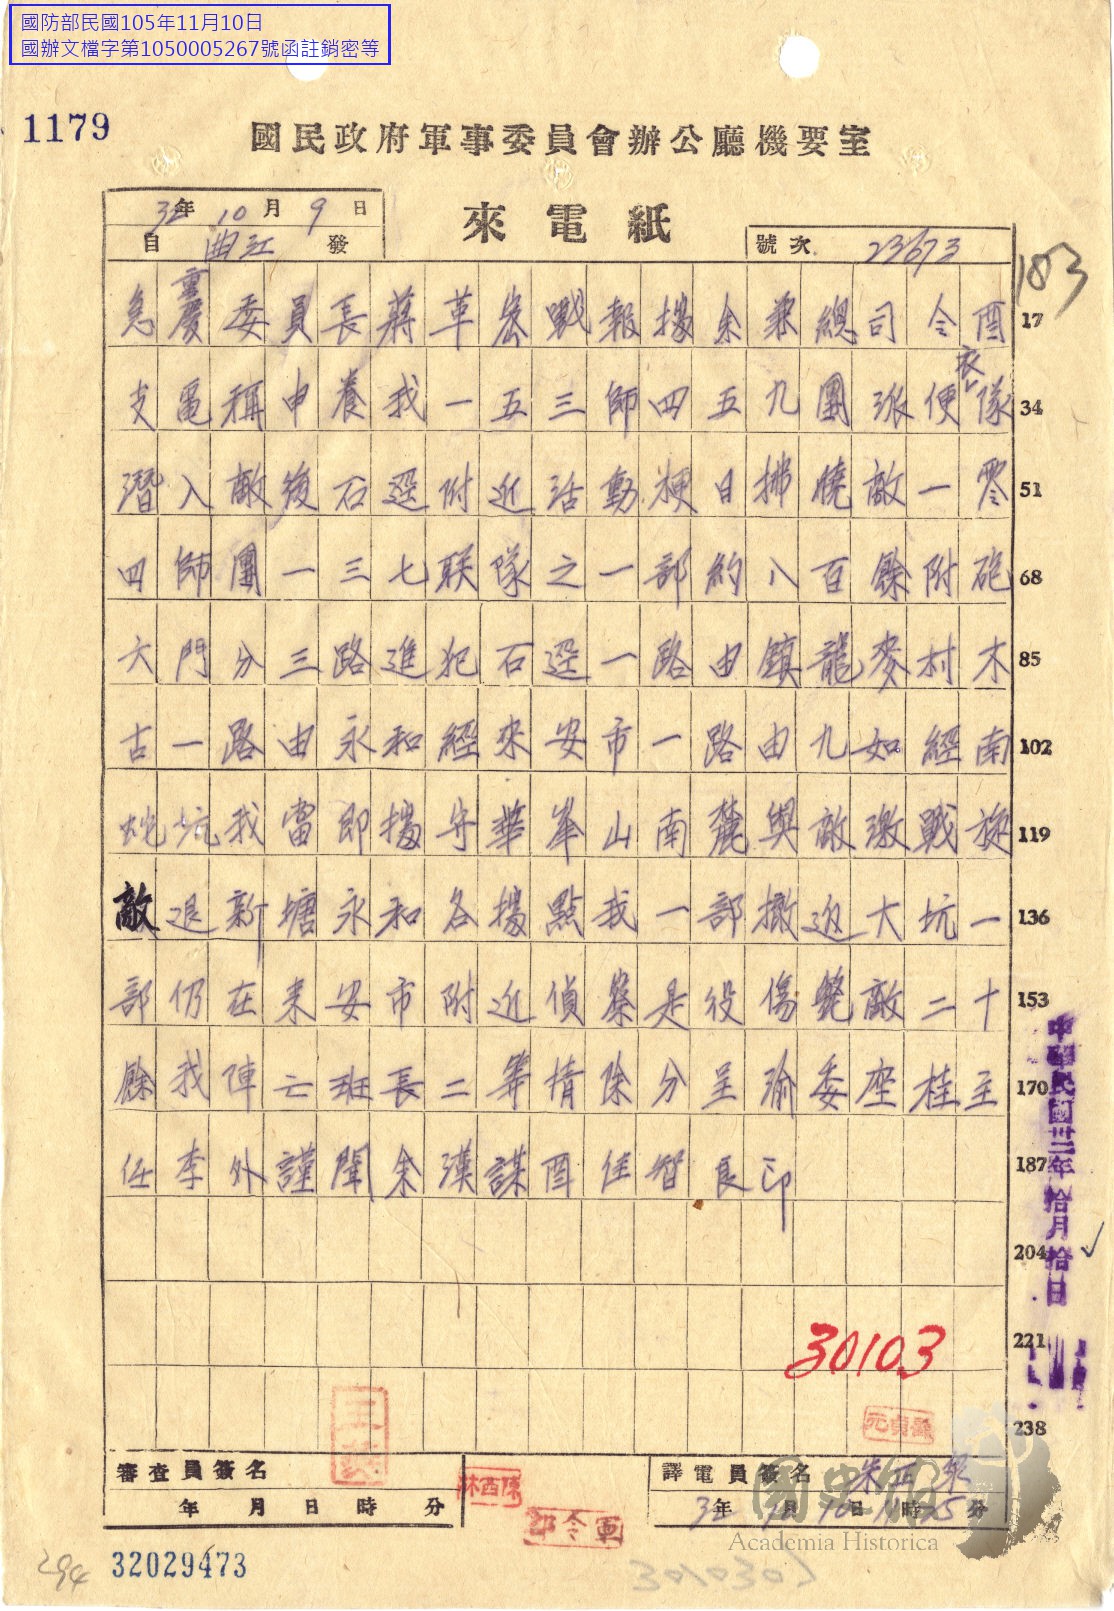 國防部民國105年11月10日
國辦文檔字第1050005267號函註銷密等
1179
國民政府軍事委員會辦公廳機要室
來電紙
32年10月9日
自曲江發
號次 23673
183
急重慶委員長蔣革密戰報據余兼總司令酉 17
支電稱申養我一五三師四五九團派便衣隊 34
潛入敵後石逕附近活動粳日拂曉敵一零 51
四師團一三七联隊之一部約八百餘附砲 68
六門分三路進犯石逕一路由鎮龍麥村木 85
古一路由永和經來安市一路由九如經南 102
蛇坑我當即據守華峯山南麓與敵激戰旋 119
敵退新塘永和各據點我一部撤返大坑一 136
部仍在来安市附近偵察是役傷斃敵二十 153
餘我陣亡班長二等情除分呈渝委座桂主 170
任李外謹聞余漢謀酉佳智良印 187
204
221
238
中華民國卅二年拾月拾日
30103
審查員簽名
年 月 日 時 分
陳西林
軍令部
譯電員簽名
32年 月10日11時15分
國史館
Academia Historica
294
32029473